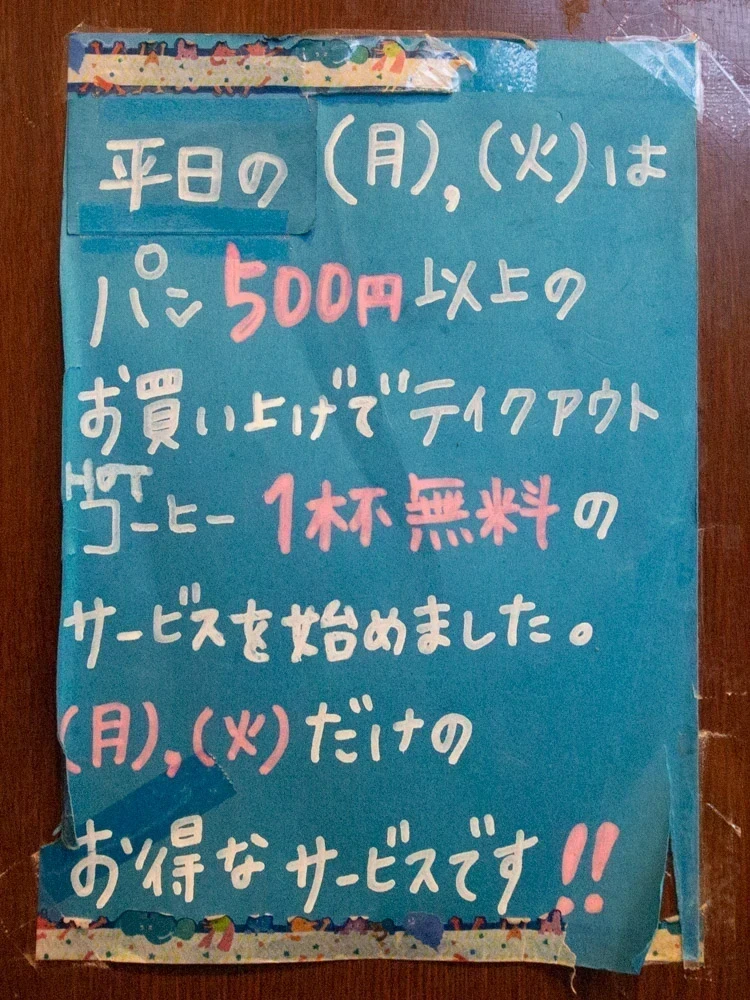 平日の(月),(火)は
パン500円以上の
お買い上げでテイクアウト
HOT
コーヒー1杯無料の
サービスを始めました。
(月),(火)だけの
お得なサービスです!!